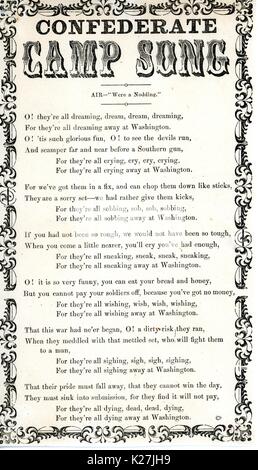 CONFEDERATE
CAMP SONG
AIR—"Were a Nodding."
O! they're all dreaming, dream, dream, dreaming,
For they're all dreaming away at Washington.
O! 'tis such glorious fun, O! to see the devils run,
And scamper far and near before a Southern gun,
For they're all crying, cry, cry, crying,
For they're all crying away at Washington.
For we've got them in a fix, and can chop them down like sticks,
They are a sorry set—we had rather give them kicks,
For they're all sobbing, sob, sob, sobbing,
For they're all sobbing away at Washington.
If you had not been so rough, we would not have been so tough,
When you come a little nearer, you'll cry you've had enough,
For they're all sneaking, sneak, sneak, sneaking,
For they're all sneaking away at Washington.
O! it is so very funny, you can eat your bread and honey,
But you cannot pay your soldiers off, because you've got no money,
For they're all wishing, wish, wish, wishing,
For they're all wishing away at Washington.
That this war had ne'er began, O! a dirty risk they ran,
When they meddled with that mettled set, who will fight them
to a man,
For they're all sighing, sigh, sigh, sighing,
For they're all sighing away at Washington.
That their pride must fall away, that they cannot win the day,
They must sink into submission, for they find it will not pay,
For they're all dying, dead, dead, dying,
For they're all dying away at Washington.
alamy
K27JH9